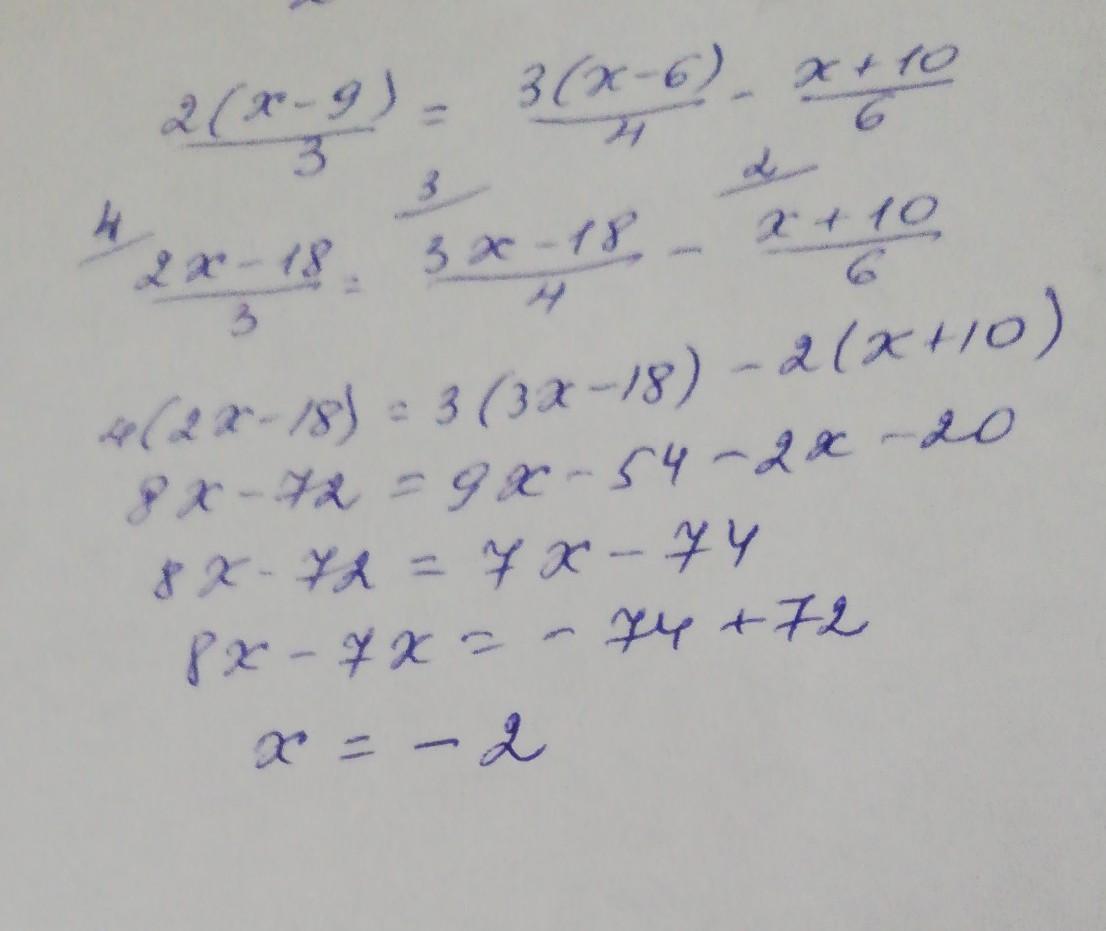 2(x-9)/3 = 3(x-6)/4 - x+10/6
4/ 2x-18/3 = 3/ 3x-18/4 - 2/ x+10/6
4(2x-18) = 3(3x-18) - 2(x+10)
8x-72 = 9x-54-2x-20
8x-72 = 7x-74
8x-7x = -74+72
x = -2